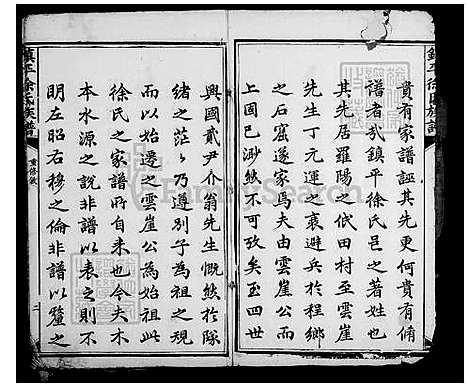 貴有家譜誣其先更何貴有脩
譜者哉鎮平徐氏邑之著姓也
其先居羅陽之佀田村至雲崖
先生丁元運之衰避兵於程鄉
之石窟遂家焉夫由雲崖公而
上固已渺然不可攷矣至四世
興國貳尹介翁先生慨然於隊
緒之茫々乃遵別子為祖之規
而以始遷之雲崖公為始祖此
徐氏之家譜所自来也今夫木
本水源之說非譜以表之則不
明左昭右穆之倫非譜以釐之
鎮平徐氏族譜
重修敘
二
FamilySearch